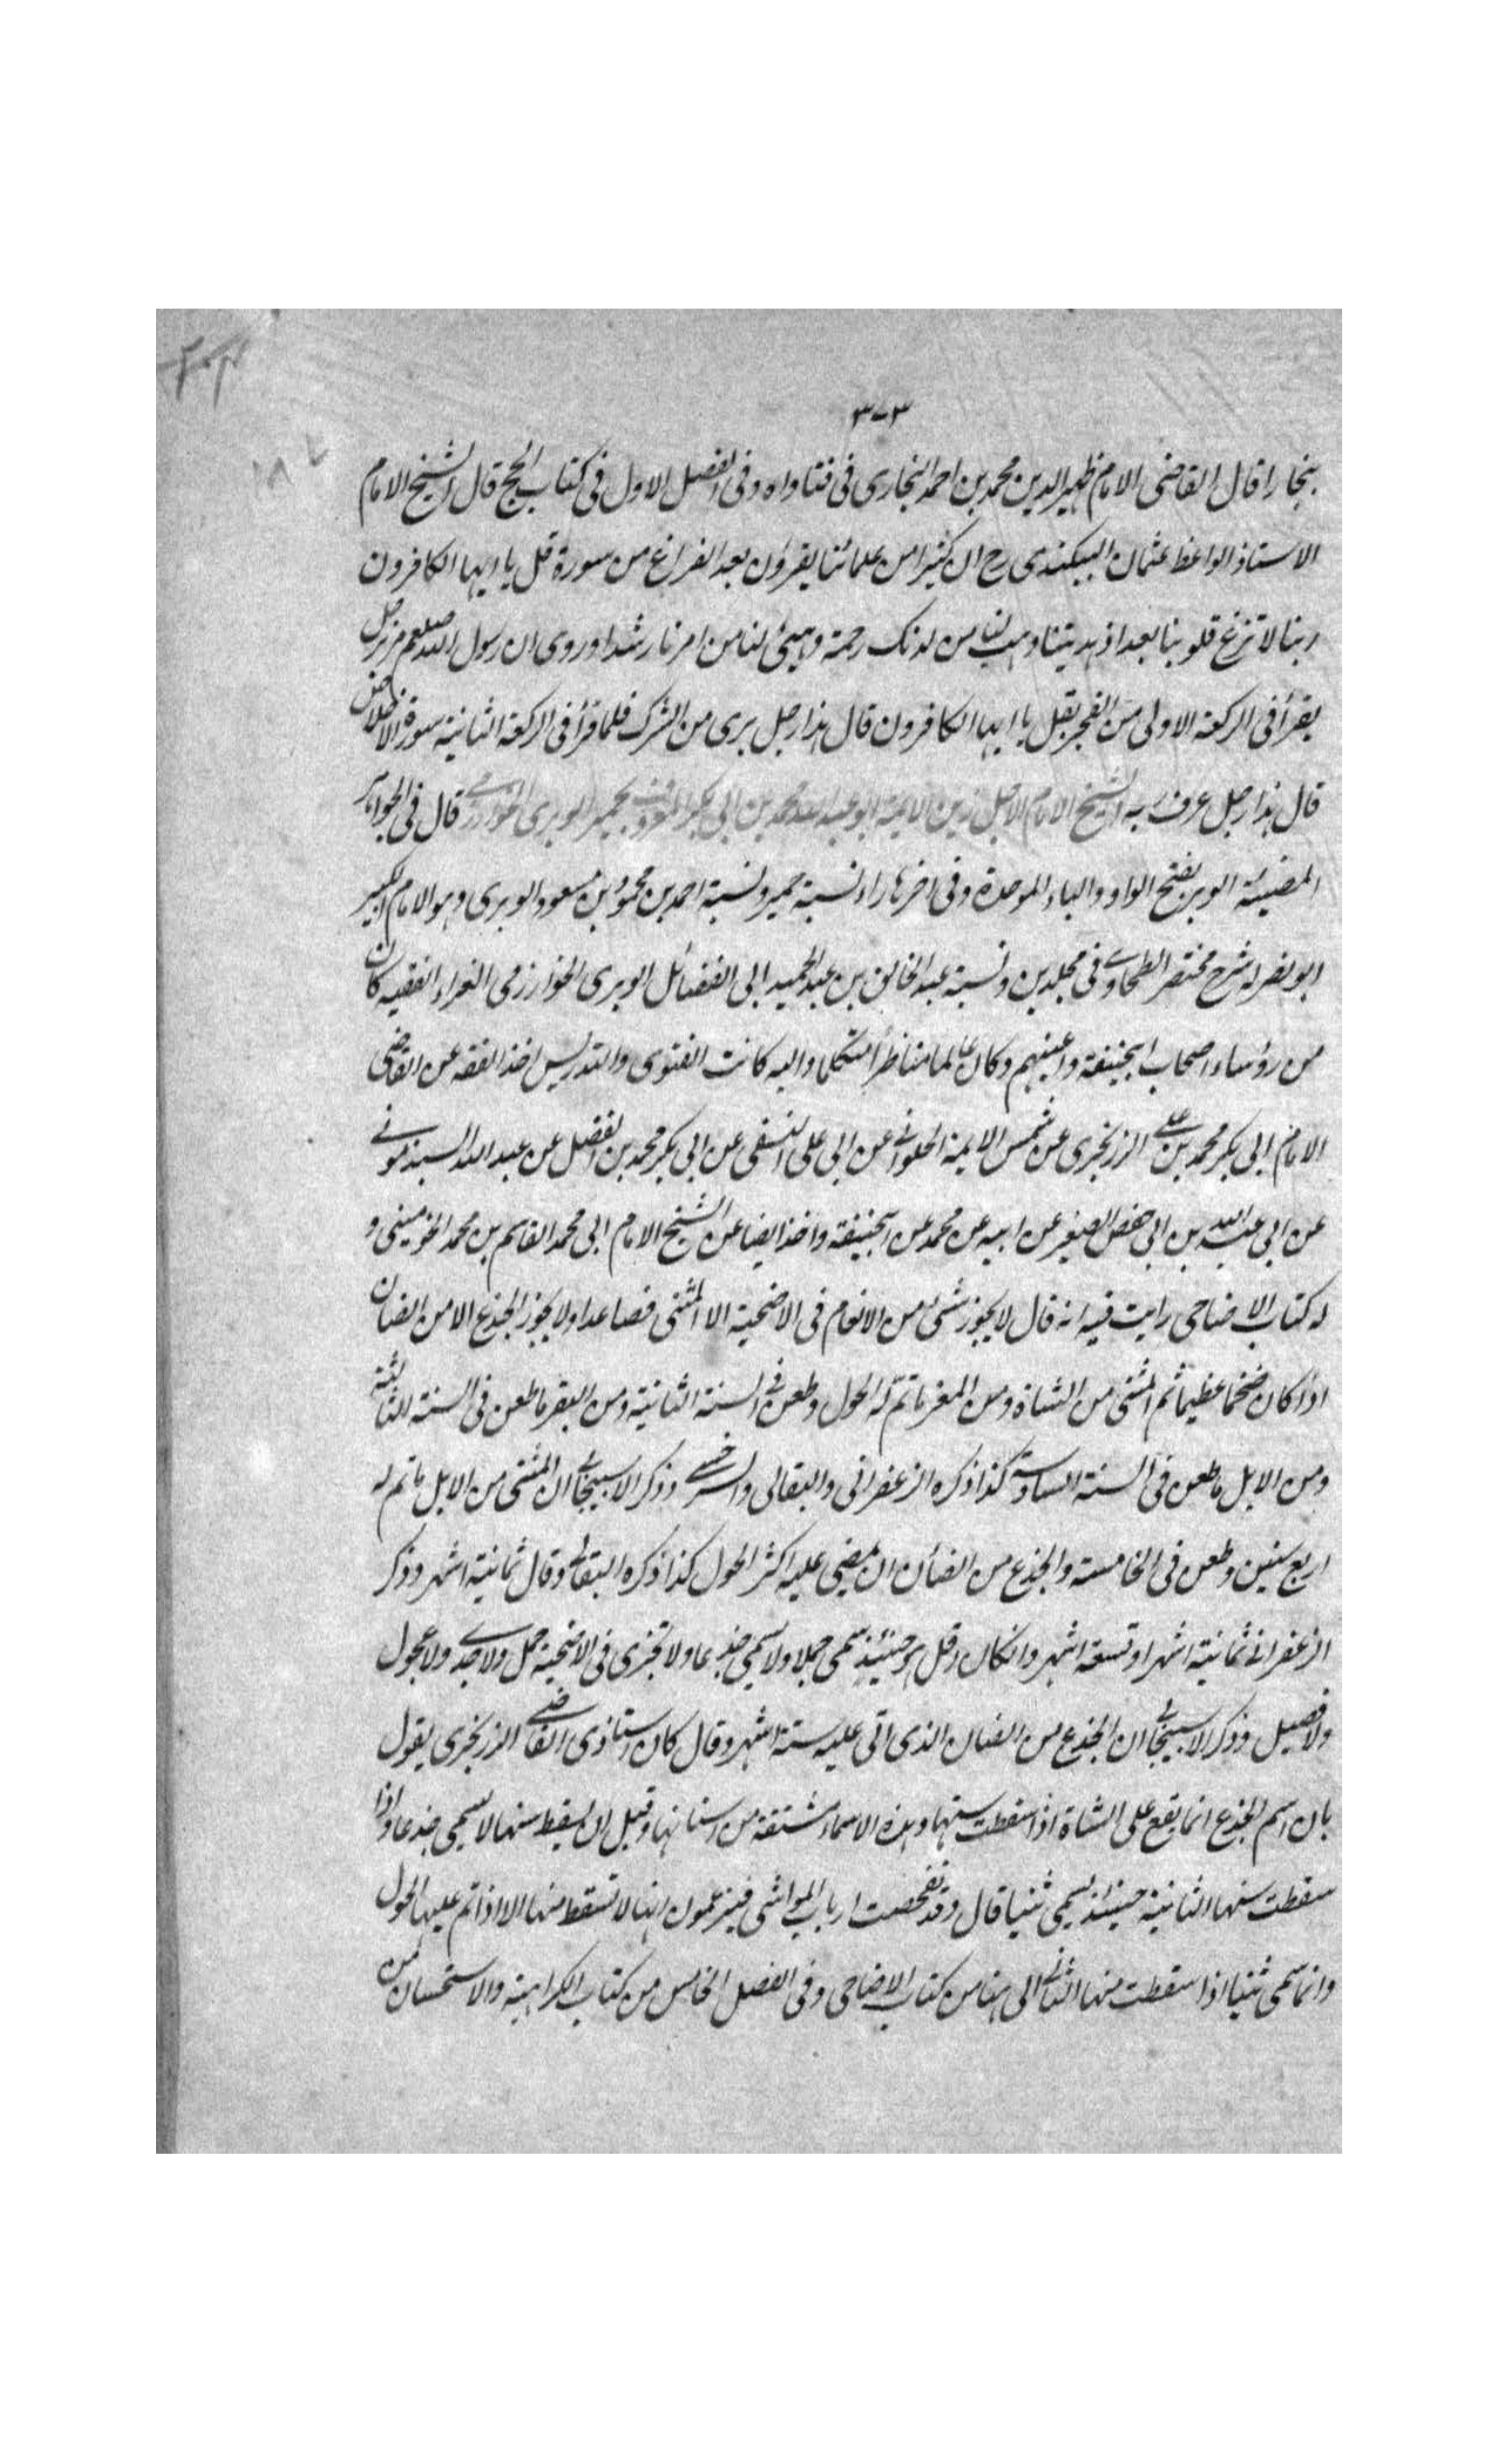 ٣-٣
ببخارا قال القاضى الامام ظهير الدين محمد بن احمد البخارى فى فتاواه وفى الفصل الاول فى كتاب الحج قال الشيخ الامام
الاستاذ الواعظ عثمان البيكندى رح ان كثيرا من علمائنا يقرؤن بعد الفراغ من سورة قل يا ايها الكافرون
ربنا لا تزغ قلوبنا بعد اذ هديتنا وهب لنا من لدنك رحمة وهيئ لنا من امرنا رشدا وروى ان رسول الله صلعم مر برجل
يقرأ فى الركعة الاولى من الفجر بقل يا ايها الكافرون قال هذا رجل برى من الشرك فلما قرأ فى الركعة الثانية سورة الاخلاص
قال هذا رجل عرف ربه الشيخ الامام الاجل زين الايمة ابو عبد الله محمد بن ابى بكر المعروف بحمير الوبرى الخوارزمى قال فى الجواهر
المضيئة الوبر بفتح الواو والباء الموحدة وفى اخرها راء نسبة حمير ونسبة احمد بن محمود بن مسعود الوبرى وهو الامام الكبير
ابو نصر له شرح مختصر الطحاوى فى مجلدين ونسبة عبد الخالق بن عبد الحميد ابى الفضائل الوبرى الخوارزمى الفراء الفقيه كان
من رؤساء اصحاب ابيحنيفة واعينهم وكان عالما مناظرا متكلما واليه كانت الفتوى والتدريس اخذ الفقه عن القاضى
الامام ابى بكر محمد بن على الزرنجرى عن شمس الايمة الحلوانى عن ابى على النسفى عن ابى بكر محمد بن الفضل عن عبد الله السبذمونى
عن ابى عبد الله بن ابى حفص الصغير عن ابيه عن محمد عن ابيحنيفة واخذ ايضا عن الشيخ الامام ابى محمد القاسم بن محمد الخوميثى و
له كتاب الاضاحى رايت فيه انه قال لا يجوز شئ من الانعام فى الاضحية الا المثنى فصاعدا ولا يجوز الجذع الا من الضان
اذا كان ضخما عظيما ثم المثنى من الشاة ومن المغر ما تم له الحول وطعن فى السنة الثانية ومن البقر ما طعن فى السنة الثالثة
ومن الابل ما طعن فى السنة السادسة كذا ذكره الزعفرانى والبقالى والسرخسى وذكر الاسبيجابى ان المثنى من الابل ما تم له
اربع سنين وطعن فى الخامسة والجذع من الضأن ان يمضى عليه اكثر الحول كذا ذكره البقالى وقال ثمانية اشهر وذكر
الزعفرانى ثمانية اشهر او تسعة اشهر وانكان اقل من حينئذ يسمى حملا ولا يسمى جذعا ولا تجزى فى الاضحية حمل ولا جدى ولا عجول
ولا فصيل وذكر الاسبيجابى ان الجذع من الضان الذى اتى عليه ستة اشهر وقال كان استاذى القاضى الزرنجرى يقول
بان اسم الجذع انما يقع على الشاة اذا سقطت سنها وهذه الاسماء مشتقة من اسنانها وقبل ان يسقط سنها لا يسمى جذعا واذا
سقطت سنها الثانية حينئذ يسمى ثنيا قال وقد تفحصت ارباب المواشى فيزعمون انها لا تسقط منها الا اذا تم عليها الحول
وانما سمى ثنيا اذا سقطت منها الثنايا الى هنا من كتاب الاضاحى وفى الفصل الخامس من كتاب الكراهية والاستحسان من